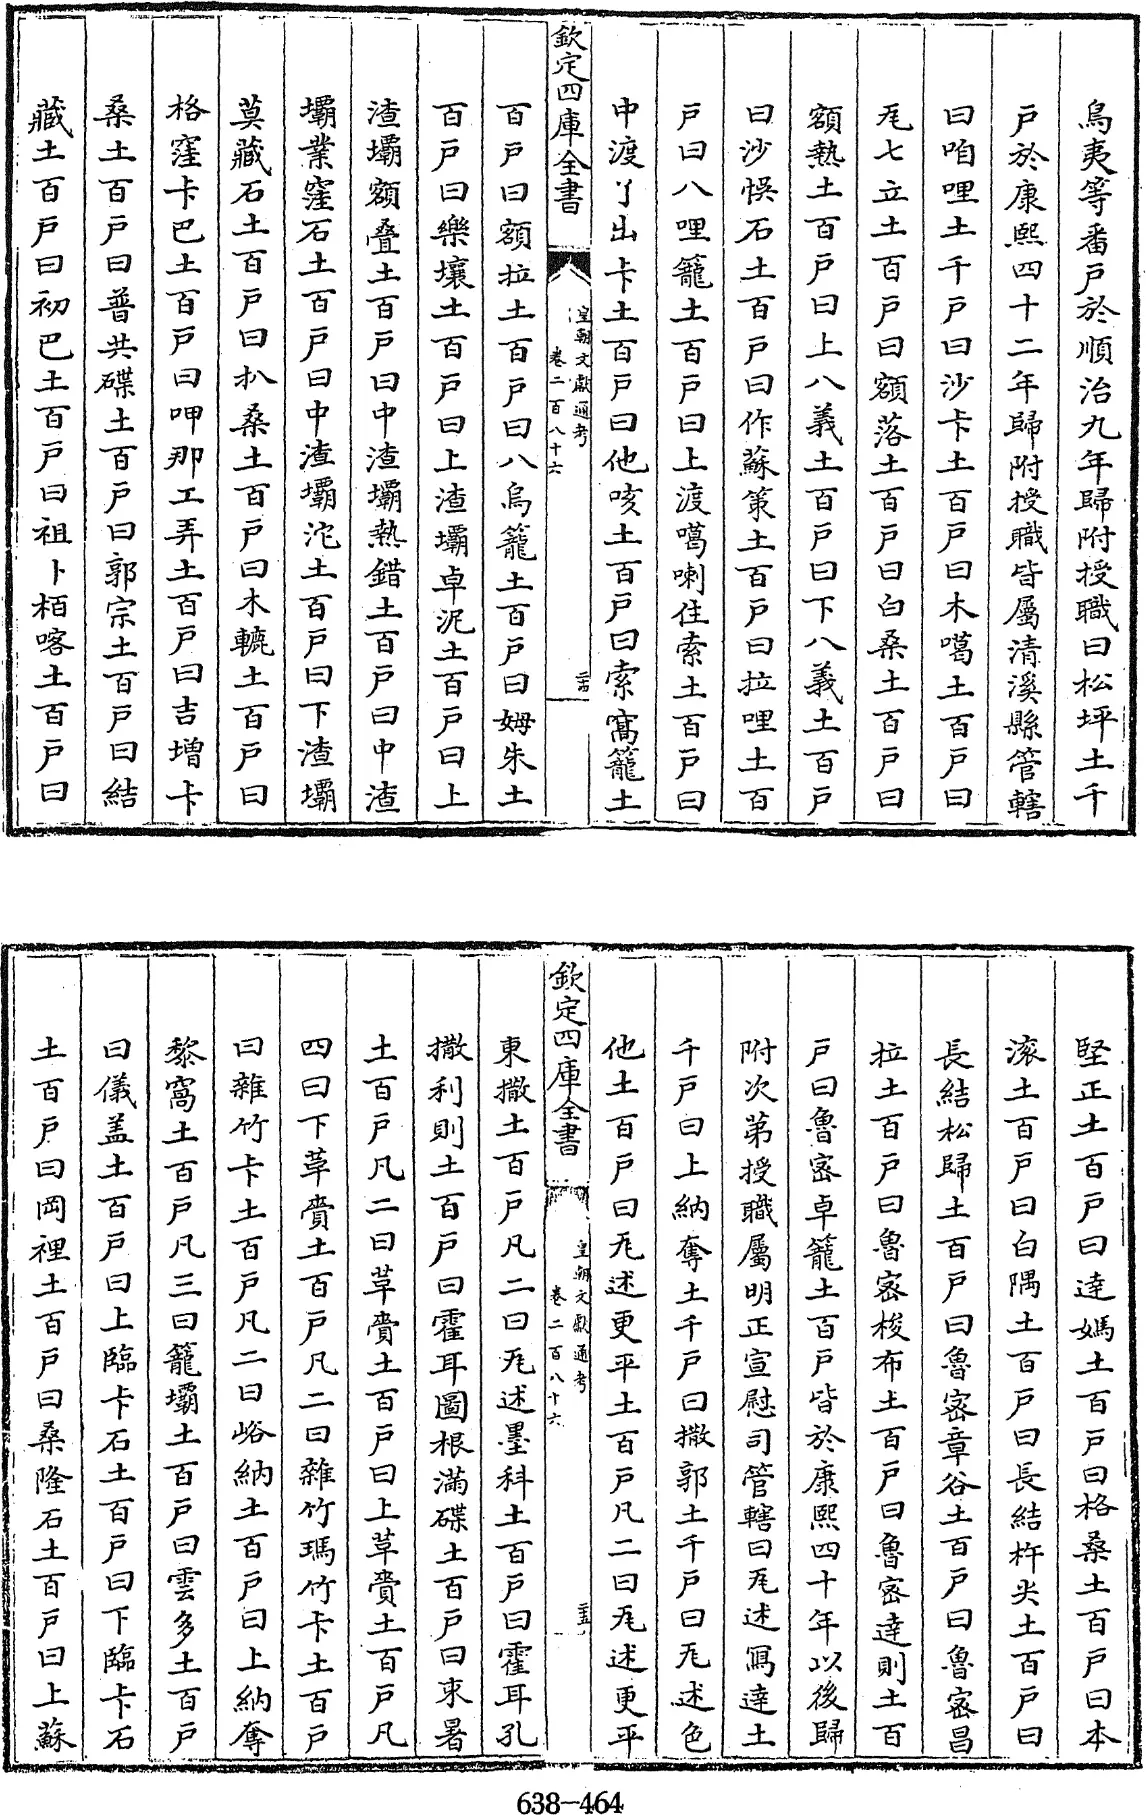 烏夷等番戶於順治九年歸附授職曰松坪土千
戶於康熙四十二年歸附授職皆屬清溪縣管轄
曰咱哩土千戶曰沙卡土百戶曰木噶土百戶曰
瓦七立土百戶曰額落土百戶曰白桑土百戶曰
額熱土百戶曰上八義土百戶曰下八義土百戶
曰沙悞石土百戶曰作蘇策土百戶曰拉哩土百
戶曰八哩籠土百戶曰上渡噶喇住索土百戶曰
中渡丫出卡土百戶曰他咳土百戶曰索窩籠土
欽定四庫全書
皇朝文獻通考
卷二百八十六
二十四
百戶曰額拉土百戶曰八烏籠土百戶曰姆朱土
百戶曰樂壤土百戶曰上渣壩卓泥土百戶曰上
渣壩額疊土百戶曰中渣壩熱錯土百戶曰中渣
壩業窪石土百戶曰中渣壩沱土百戶曰下渣壩
莫藏石土百戶曰扒桑土百戶曰木轆土百戶曰
格窪卡巴土百戶曰呷那工弄土百戶曰吉增卡
桑土百戶曰普共碟土百戶曰郭宗土百戶曰結
藏土百戶曰初巴土百戶曰祖卜栢喀土百戶曰
堅正土百戶曰達媽土百戶曰格桑土百戶曰本
滚土百戶曰白隅土百戶曰長結杵尖土百戶曰
長結松歸土百戶曰魯密章谷土百戶曰魯密昌
拉土百戶曰魯密梭布土百戶曰魯密達則土百
戶曰魯密卓籠土百戶皆於康熙四十年以後歸
附次第授職屬明正宣慰司管轄曰瓦述寫達土
千戶曰上納奪土千戶曰撒郭土千戶曰瓦述色
他土百戶曰瓦述更平土百戶凡二曰瓦述更平
欽定四庫全書
皇朝文獻通考
卷二百八十六
二十五
東撒土百戶凡二曰瓦述墨科土百戶曰霍耳孔
撒利則土百戶曰霍耳圖根滿碟土百戶曰束暑
土百戶凡二曰草賫土百戶曰上草賫土百戶凡
四曰下草賫土百戶凡二曰雜竹瑪竹卡土百戶
曰雜竹卡土百戶凡二曰峪納土百戶曰上納奪
黎窩土百戶凡三曰籠壩土百戶曰雲多土百戶
曰儀盖土百戶曰上臨卡石土百戶曰下臨卡石
土百戶曰岡裡土百戶曰桑隆石土百戶曰上蘇
638-464